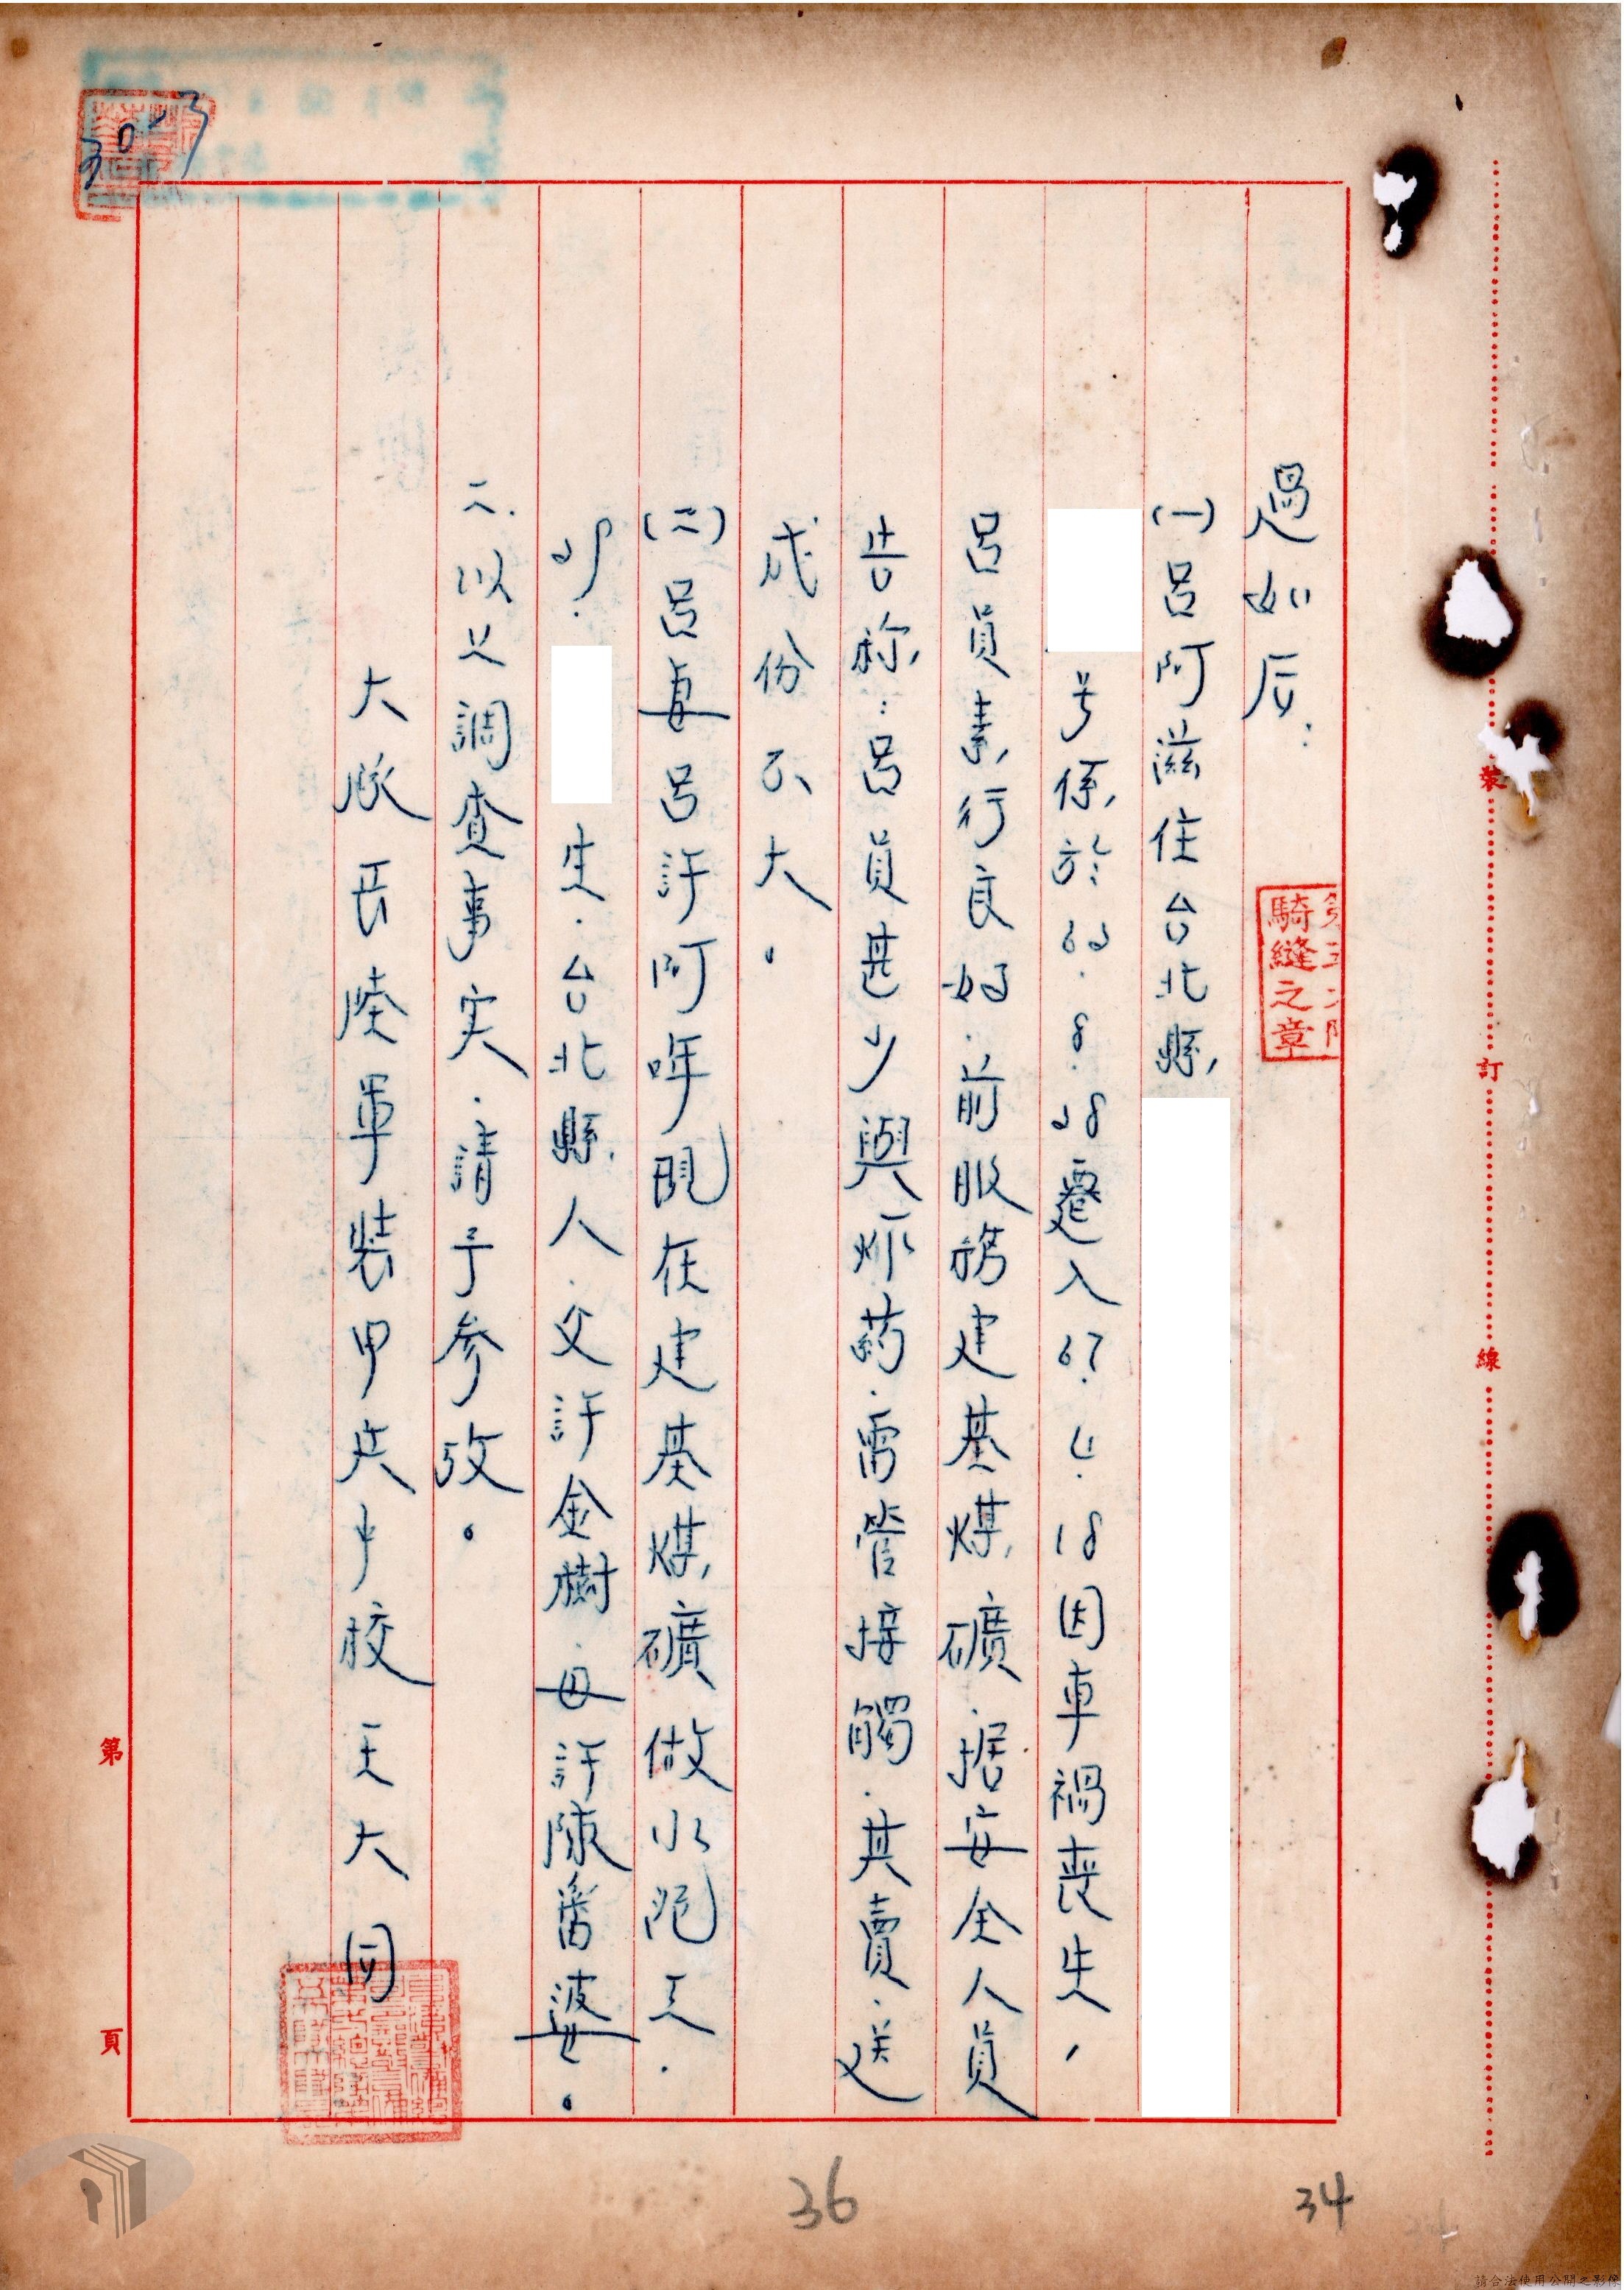 過如后:
(一)呂阿滋住台北縣
号係於60.8.28遷入67.4.18因車禍喪失,
呂員素行良好.前服務建基煤礦.据安全人員
告称:呂員甚少與炸葯.雷管接觸.其賣.送
成份不大。
(二)呂車呂許阿咩現在建基煤礦做水泥工.
生.台北縣人.父許金樹.母許陳番婆。
二.以上調查事实.請予參攷。
大隊長陸軍裝甲兵中校王大同
騎縫之章
裝
訂
線
第
頁
36
34
請合法使用公開之影像